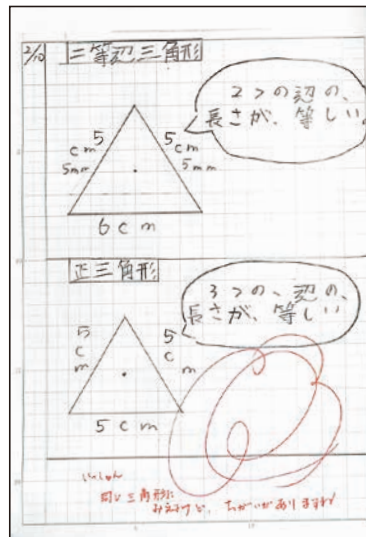 2/10
二等辺三角形
2つの辺の、
長さが、等しい。
5cm
5mm
5cm
5mm
6cm
正三角形
3つの、辺の、
長さが、等しい
5cm
5cm
5cm
いっしゅん
同じ三角形に
みえるけど、ちがいがありますね